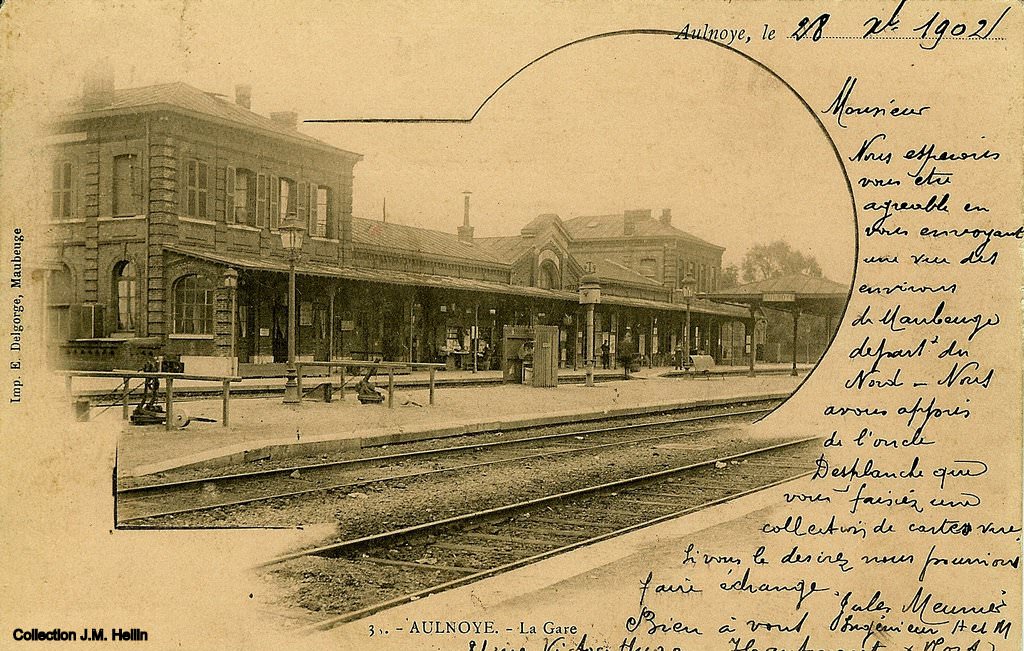 Aulnoye, le 28 Xbre 1902
Monsieur
Nous esperons
vous etre
agreable en
vous envoyant
une vue des
environs
de Maubeuge
depart^t du
Nord - Nous
avons appris
de l'oncle
Desplanche que
vous faisiez une
collection de cartes vue
Si vous le desirez nous pourrions
faire échange.
Bien à vous
Jules Meunier
Ingénieur A et M
Usine Victor Hugo Hautmont Nord
Imp. E. Delgorge, Maubeuge
AULNOYE. - La Gare
Collection J.M. Hellin